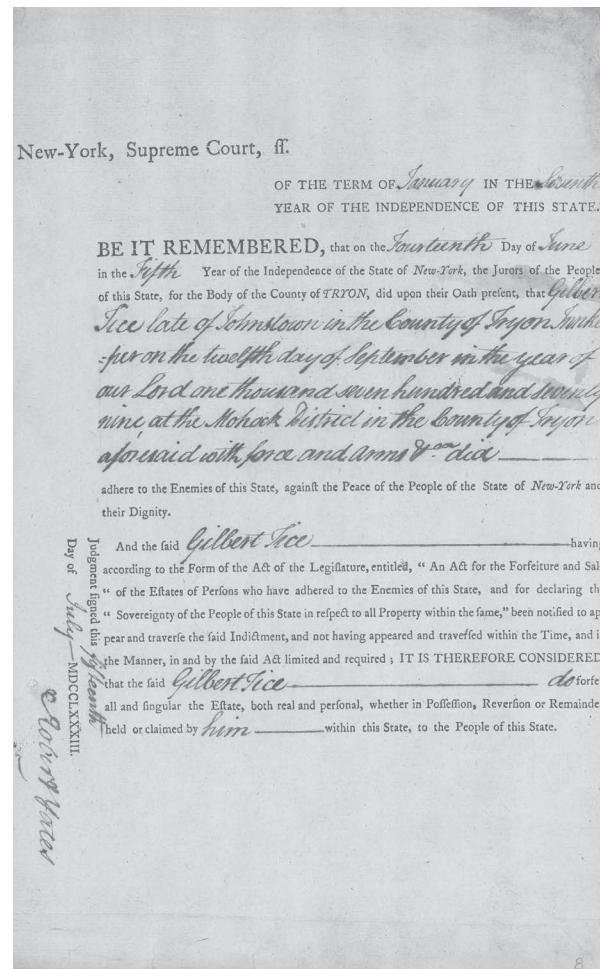 New-York, Supreme Court, ſſ.
OF THE TERM OF January IN THE Seventh
YEAR OF THE INDEPENDENCE OF THIS STATE.
BE IT REMEMBERED, that on the Fourteenth Day of June
in the Fifth Year of the Independence of the State of New-York, the Jurors of the People
of this State, for the Body of the County of TRYON, did upon their Oath preſent, that Gilbert
Tice late of Johnstown in the County of Tryon
per on the twelfth day of September in the year of
our Lord one thousand seven hundred and seventy
nine at the Mohack District in the County of Tryon
aforesaid with force and arms &ca did
adhere to the Enemies of this State, againſt the Peace of the People of the State of New-York and
their Dignity.
And the ſaid Gilbert Tice having
according to the Form of the Act of the Legiſlature, entitled, “ An Act for the Forfeiture and Sal
“ of the Eſtates of Perſons who have adhered to the Enemies of this State, and for declaring th
“ Sovereignty of the People of this State in reſpect to all Property within the ſame,” been notified to ap
pear and traverſe the ſaid Indictment, and not having appeared and traverſed within the Time, and i
the Manner, in and by the ſaid Act limited and required ; IT IS THEREFORE CONSIDERED
that the ſaid Gilbert Tice do forfe
all and ſingular the Eſtate, both real and perſonal, whether in Poſſeſſion, Reverſion or Remainde
held or claimed by him within this State, to the People of this State.
Judgment ſigned this fifteenth
Day of July MDCCLXXXIII.
Robert Yates
8